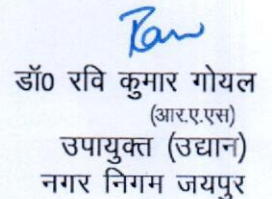 डॉ0 रवि कुमार गोयल
(आर.ए.एस)
उपायुक्त (उद्यान)
नगर निगम जयपुर